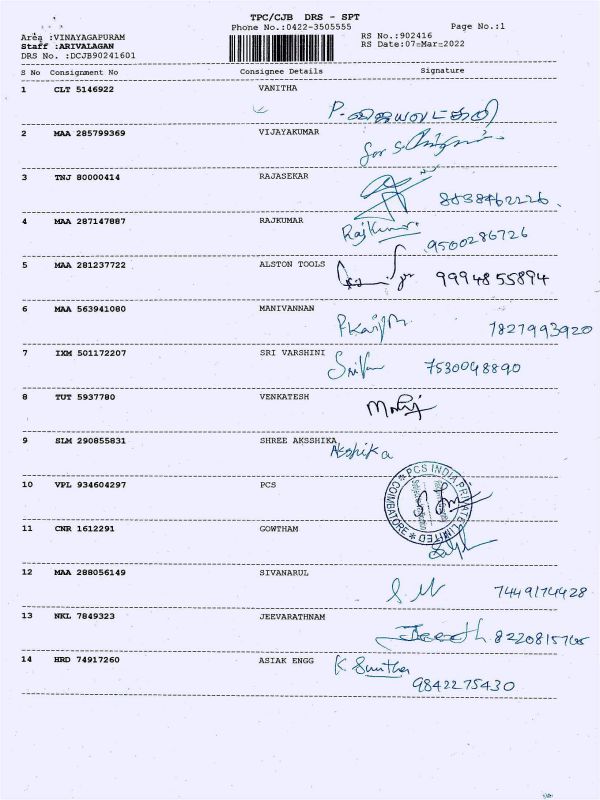 TPC/CJB DRS - SPT
Phone No.:0422-3505555 Page No.:1
Area :VINAYAGAPURAM RS No.:902416
Staff :ARIVALAGAN RS Date:07-Mar-2022
DRS No. :DCJB90241601
S No Consignment No Consignee Details Signature
1 CLT 5146922 VANITHA
2 MAA 285799369 VIJAYAKUMAR
3 TNJ 80000414 RAJASEKAR
8838462226
4 MAA 287147887 RAJKUMAR Rajkumar
9500286726
5 MAA 281237722 ALSTON TOOLS 9994855894
6 MAA 563941080 MANIVANNAN
7827993920
7 IXM 501172207 SRI VARSHINI 7530048890
8 TUT 5937780 VENKATESH
9 SLM 290855831 SHREE AKSSHIKA
Akshika
10 VPL 934604297 PCS
PCS INDIA PRIVATE LIMITED * COIMBATORE *
11 CNR 1612291 GOWTHAM
12 MAA 288056149 SIVANARUL
7449174428
13 NKL 7849323 JEEVARATHNAM
8220815765
14 HRD 74917260 ASIAK ENGG K Sunitha
9842275430